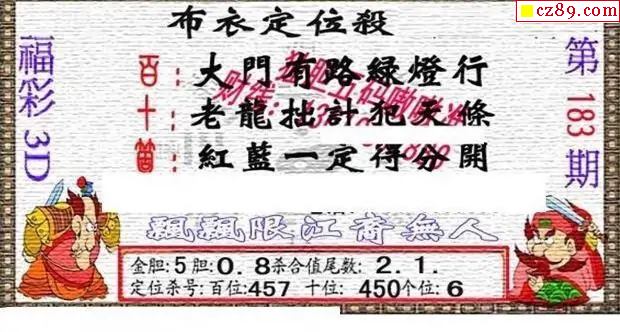 cz89.com
布衣定位殺
福彩3D
第183期
百:大門有路綠燈行
十:老龍拙計犯天條
個:紅藍一定得分開
金胆:5胆:0.8杀合值尾数:2.1.
定位杀号:百位:457 十位:450个位:6